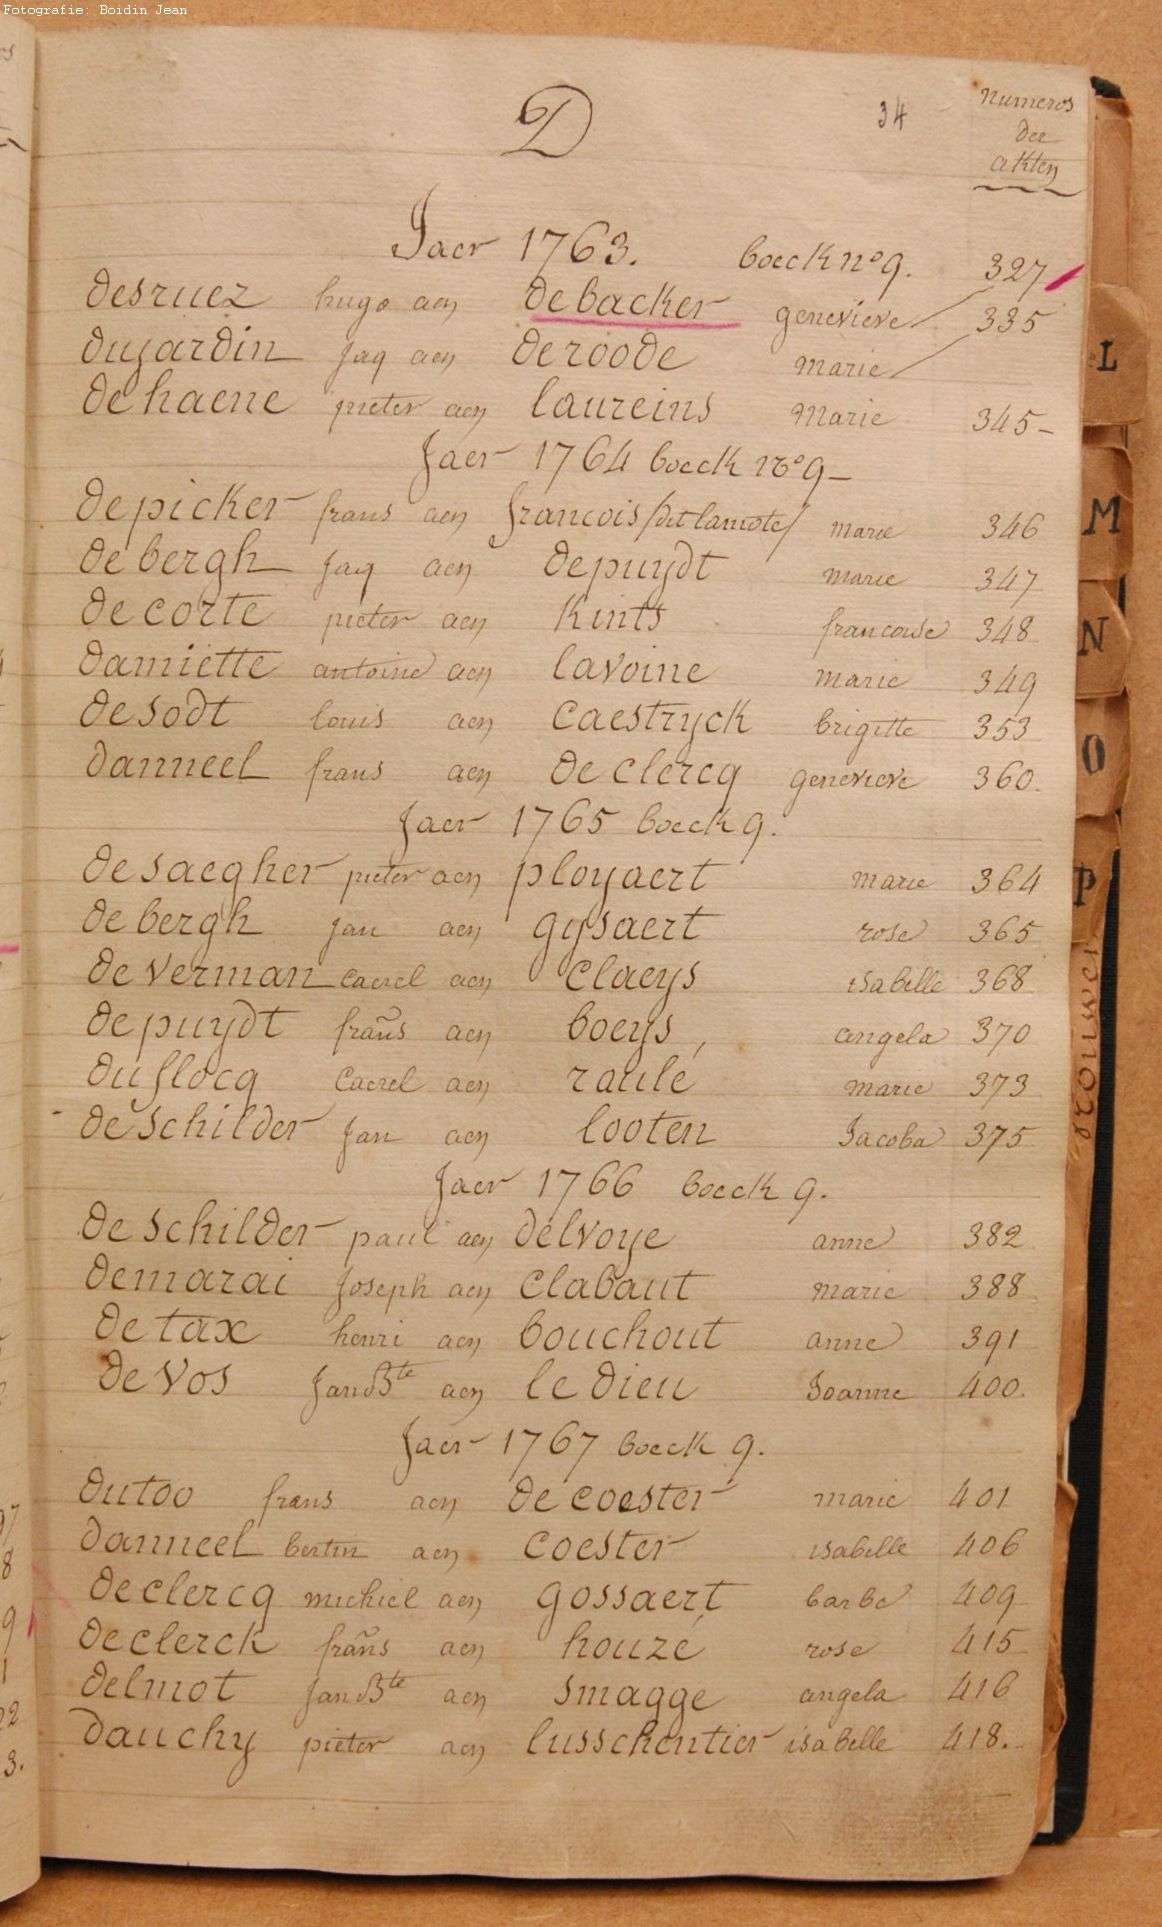 Fotografie: Boidin Jean
D
34
Numeros
der
akten
Jaer 1763. boeck n° 9.
desruez hugo aen debacker genevieve 327
dujardin Jaq aen deroode marie 335
dehaene pieter aen laureins Marie 345-
Jaer 1764 boeck n° 9-
depicker frans aen francois /dit lamote/ marie 346
debergh Jaq aen depuydt marie 347
decorte pieter aen Kints francoise 348
damiette antoine aen lavoine marie 349
desodt louis aen Caestryck brigitte 353
danneel frans aen declercq genevieve 360.
Jaer 1765 boeck 9.
desaegher pieter aen ployaert marie 364
debergh Jan aen gysaert rose 365
deverman Caerel aen Claeys isabelle 368
depuydt frans aen boeys angela 370
duflocq Caerel aen raulé marie 373
deschilder Jan aen looten Jacoba 375
Jaer 1766 boeck 9.
deschilder paul aen delvoye anne 382
demarai Joseph aen Clabaut marie 388
detax henri aen bouchout anne 391
devos Jan Bte aen ledieu Joanne 400.
Jaer 1767 boeck 9.
dutoo frans aen decoester marie 401
danneel bertin aen Coester isabelle 406
declercq michiel aen gossaert barbe 409
declerck frans aen houzé rose 415
delmot Jan Bte aen Smagge angela 416
dauchy pieter aen lusschentier isabelle 418.
L
M
N
O
P